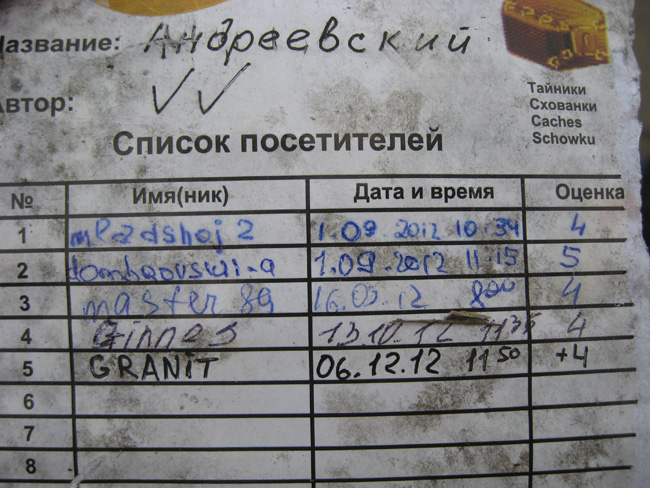 Название: Андреевский
Автор: VV
Тайники
Схованки
Caches
Schowku
Список посетителей
№ Имя(ник) Дата и время Оценка
1 mladshoj 2 1.09.2012 10 34 4
2 1.09.2012 11 15 5
3 master 89 12 8 00 4
4 Ginnes 13.10.12 11 35 4
5 GRANIT 06.12.12 11 50 +4
6
7
8